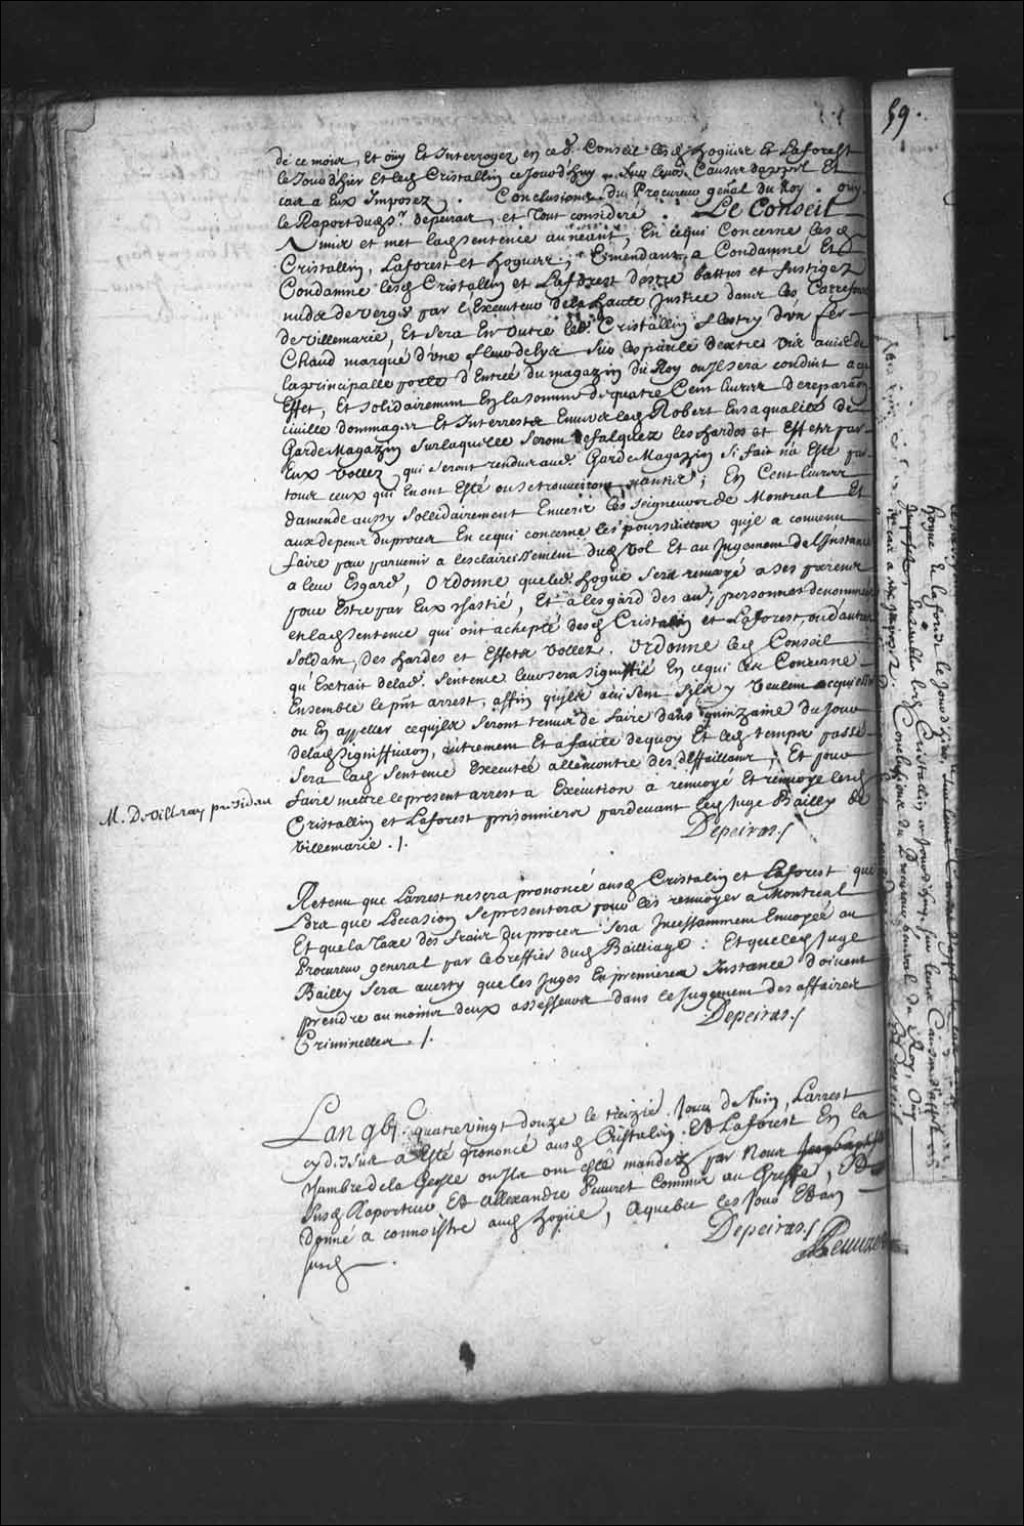 59.
de ce mois, Et oüy Et Interrogez en ce d. Conseil lesd hoguer Et Laforest
le Jour d'hier Et led Cristallin ce Jourd'huy Sur leurs Causes dappel Et
cas a Eux Imposez. Conclusions du Procureur genal du Roy. ouy
le Raport dud sr depeiras, et Tout consideré. Le Conseil
a mis et met lad sentence au neant, En cequi Concerne lesd
Cristallin, Laforest et hoguer; Emendant a Condamné Et
Condamne lesd Cristallin et Laforest destre battus et fustigez
nuds de verges par l'Executeur dela haute Justice dans les Carrefours
de villemarie, Et sera En outre led. Cristallin flestry d'un fer
Chaud marqué d'une fleur de lys sur lespaule dextre vis avis de
la principalle porte d'Entrée du magazin du Roy ou Il sera conduit a cet
Effet, Et solidairement En la somme de quatre Cent livres de reparaon
civille dommages Et Interrests Envers led Robert En sa qualité de
Garde Magazin sur laquelle seront defalquez les hardes et Effets par
Eux vollez, qui seront rendus aud. Garde Magazin si fait na Esté par
tous ceux qui En ont Esté ou se trouveront nantis; En Cent livres
damende aussy sollidairement Envers les seigneurs de Montreal Et
aux depens du proces En cequi concerne les poursuittes quil a convenu
faire pour parvenir a lesclaircissement dud vol Et au Jugement de l'Instance
a leur Esgard, Ordonne que led. hogue sera renvoyé a ses parens
pour Estre par Eux chastié, Et a lesgard des auꝰ personnes denommées
en lad sentence qui ont achepté desd Cristalin et Laforest, ou dautres
soldats, des hardes et Effets vollez. Ordonne led Conseil
qu'Extrait delad. sentence leur sera signiffié En cequi les Concerne
Ensemble le pñt arrest, affin quils avisent s'ils y veulent acquiescer
ou En appeller cequils seront tenus de faire dans quinzaine du Jour
delad signiffication, autrement Et a faute dequoy Et led temps passé
sera lad sentence Executée allencontre des deffaillans; Et pour
faire mettre le present arrest a Execution a renvoyé Et renvoye lesd
Cristallin et Laforest prisonniers pardevant led Juge Bailly de
villemarie ./.
Depeiras./
M. D. Villeray president
Retenu que Larrest ne sera prononcé ausd Cristalin et Laforest que
Lors que Locasion se presentera pour les renvoyer a Montreal
Et que la Taxe des frais du proces sera Incessamment Envoyée au
Procureur general par le Greffier dud Bailliage: Et que led Juge
Bailly sera averty que les Juges En premiere Instance doivent
prendre au moins deux assesseurs dans le Jugement des affaires
Criminelles ./.
Depeiras./
Lan gbj.c quatre vingt douze le treizie. Jour de Juin, Larrest
cy dessus a Esté prononcé ausd Cristalin Et Laforest En la
chambre dela Geosle ou Ils ont esté mandez par Nous
susd Raporteur Et Allexandre Peuvret Commis au Greffe, Et
donné a connoistre aud hogüe, a quebec les Jour Et an
susd
Depeiras./
Peuvret
hogue & laforest le Jour d'hier,
led Cristallin ce Jourd'huy, sur leurs Causes d'appel
Conclusions du Procureur general du Roy, Ouy